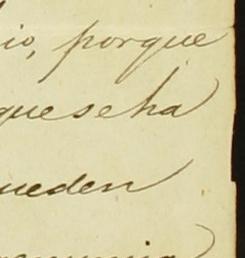 io, porque
que se ha
ueden